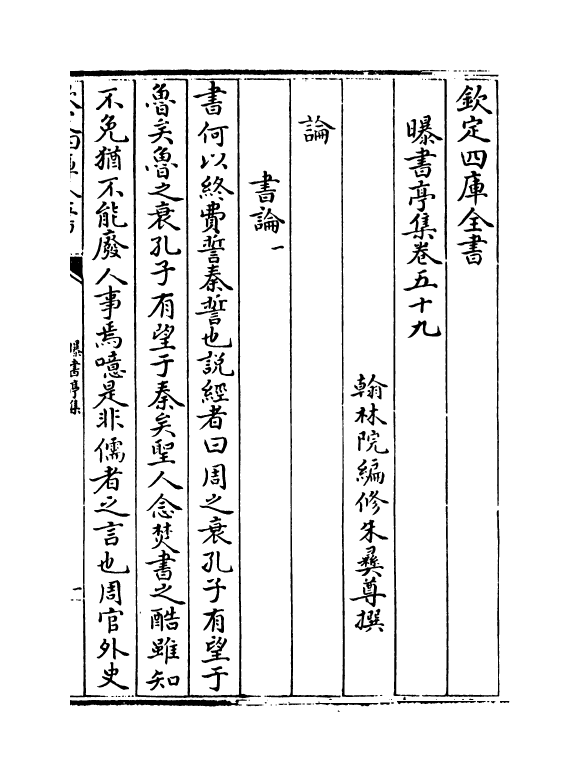 欽定四庫全書
曝書亭集卷五十九
翰林院編修朱彞尊撰
論
書論一
書何以終費誓秦誓也說經者曰周之衰孔子有望于
魯矣魯之衰孔子有望于秦矣聖人念焚書之酷雖知
不免猶不能廢人事焉噫是非儒者之言也周官外史
曝書亭集
一